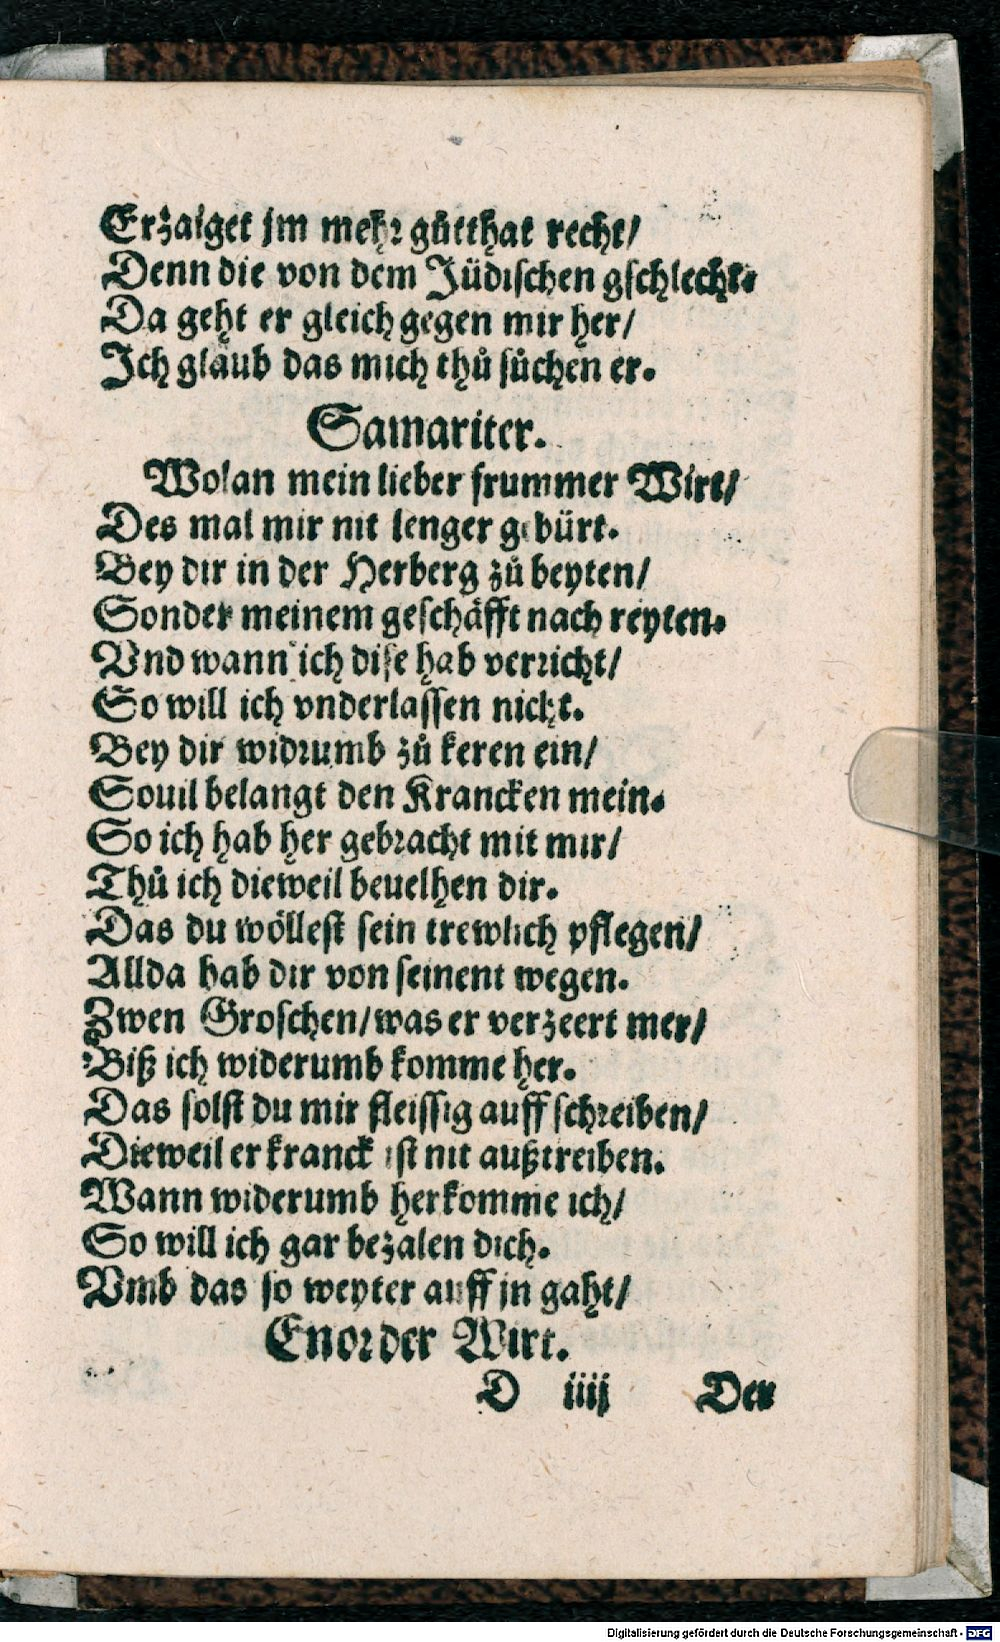 Erzaiget jm mehr gůtthat recht/
Denn die von dem Jüdischen gschlecht.
Da geht er gleich gegen mir her/
Ich glaub das mich thů sůchen er.
Samariter.
Wolan mein lieber frummer Wirt/
Des mal mir nit lenger gebürt.
Bey dir in der Herberg zů beyten/
Sonder meinem geschäfft nach reyten.
Vnd wann ich dise hab verricht/
So will ich vnderlassen nicht.
Bey dir widrumb zů keren ein/
Souil belangt den Krancken mein.
So ich hab her gebracht mit mir/
Thů ich dieweil beuelhen dir.
Das du wöllest sein trewlich pflegen/
Allda hab dir von seinent wegen.
Zwen Groschen/was er verzeert mer/
Biß ich widerumb komme her.
Das solst du mir fleissig auff schreiben/
Dieweil er kranck ist nit außtreiben.
Wann widerumb herkomme ich/
So will ich gar bezalen dich.
Vmb das so weyter auff jn gaht/
Enor der Wirt.
D iiij Der
Digitalisierung gefördert durch die Deutsche Forschungsgemeinschaft - DFG